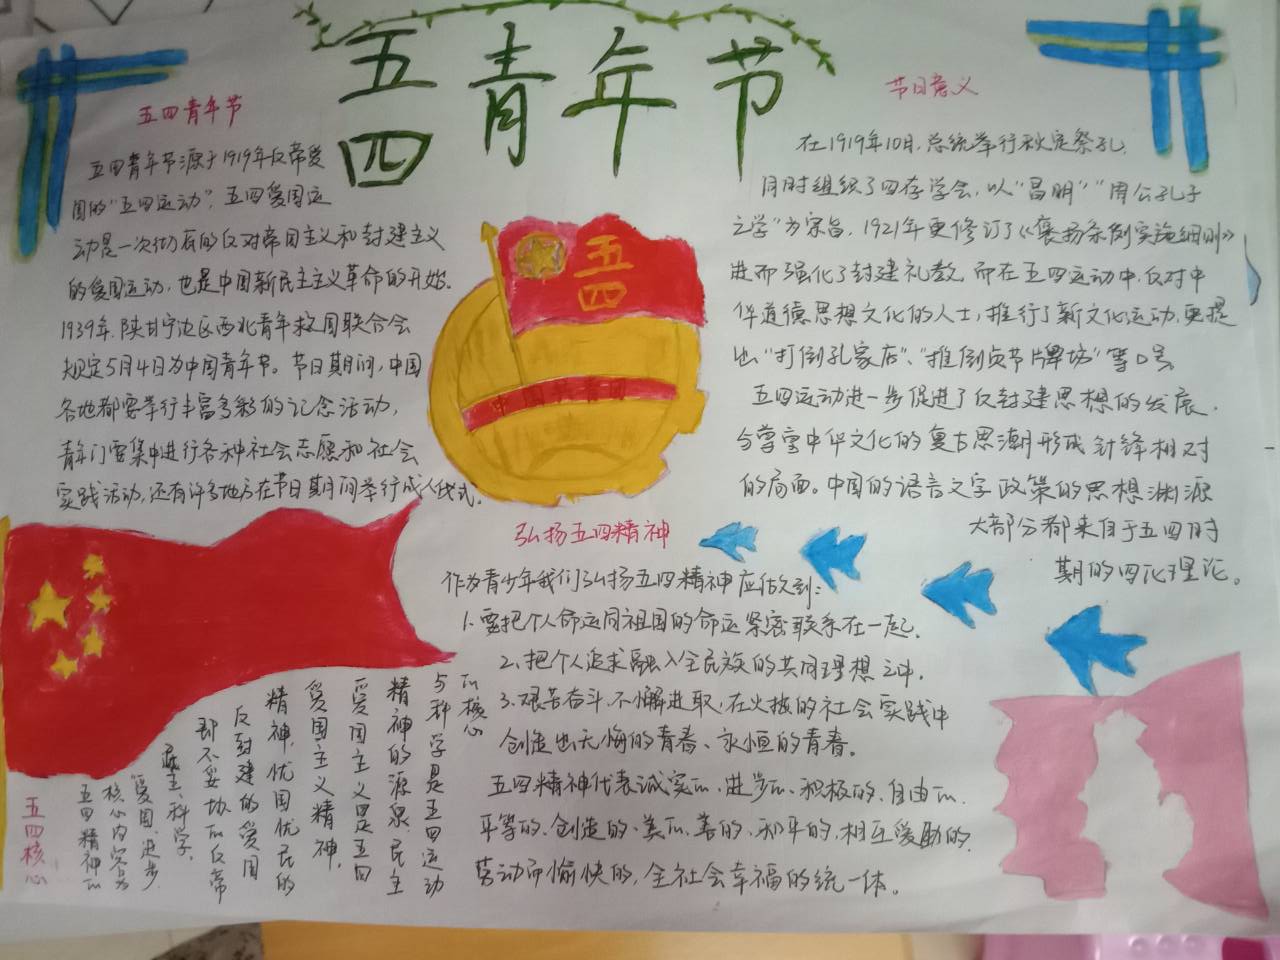 五四青年节
五四青年节
五四青年节源于1919年反帝爱
国的"五四运动",五四爱国运
动是一次彻底的反对帝国主义和封建主义
的爱国运动,也是中国新民主主义革命的开始.
1939年,陕甘宁边区西北青年救国联合会
规定5月4日为中国青年节。节日期间,中国
各地都要举行丰富多彩的记念活动,
青年们要集中进行各种社会志愿和社会
实践活动,还有许多地方在节日期间举行成人仪式.
节日意义
在1919年10月,总统举行秋定祭孔,
同时组织了四存学会,以"昌明""周公孔子
之学"为宗旨,1921年更修订了《褒扬条例实施细则》
进而强化了封建礼教.而在五四运动中,反对中
华道德思想文化的人士,推行了新文化运动,更提
出"打倒孔家店"、"推倒贞节牌坊"等口号
五四运动进一步促进了反封建思想的发展,
与尊雩中华文化的复古思潮形成针锋相对
的局面。中国的语言文字政策的思想渊源
大部分都来自于五四时
期的四化理论。
五四
中国共青团
弘扬五四精神
作为青少年我们弘扬五四精神应做到:
1.要把个人命运同祖国的命运紧密联系在一起.
2.把个人追求融入全民族的共同理想之中.
3.艰苦奋斗.不懈进取,在火热的社会实践中
创造出无悔的青春、永恒的青春。
五四精神代表诚实的、进步的、积极的、自由的、
平等的、创造的、美的、善的、和平的,相互爱助的.
劳动而愉快的,全社会幸福的统一体。
五四核心
五四精神的
核心内容为
爱国、进步.
民主、科学.
即不妥协的反帝
反封建的爱国
精神,忧国忧民的
爱国主义精神,
爱国主义是五四
精神的源泉.民主
与种学是五四运动
的核心